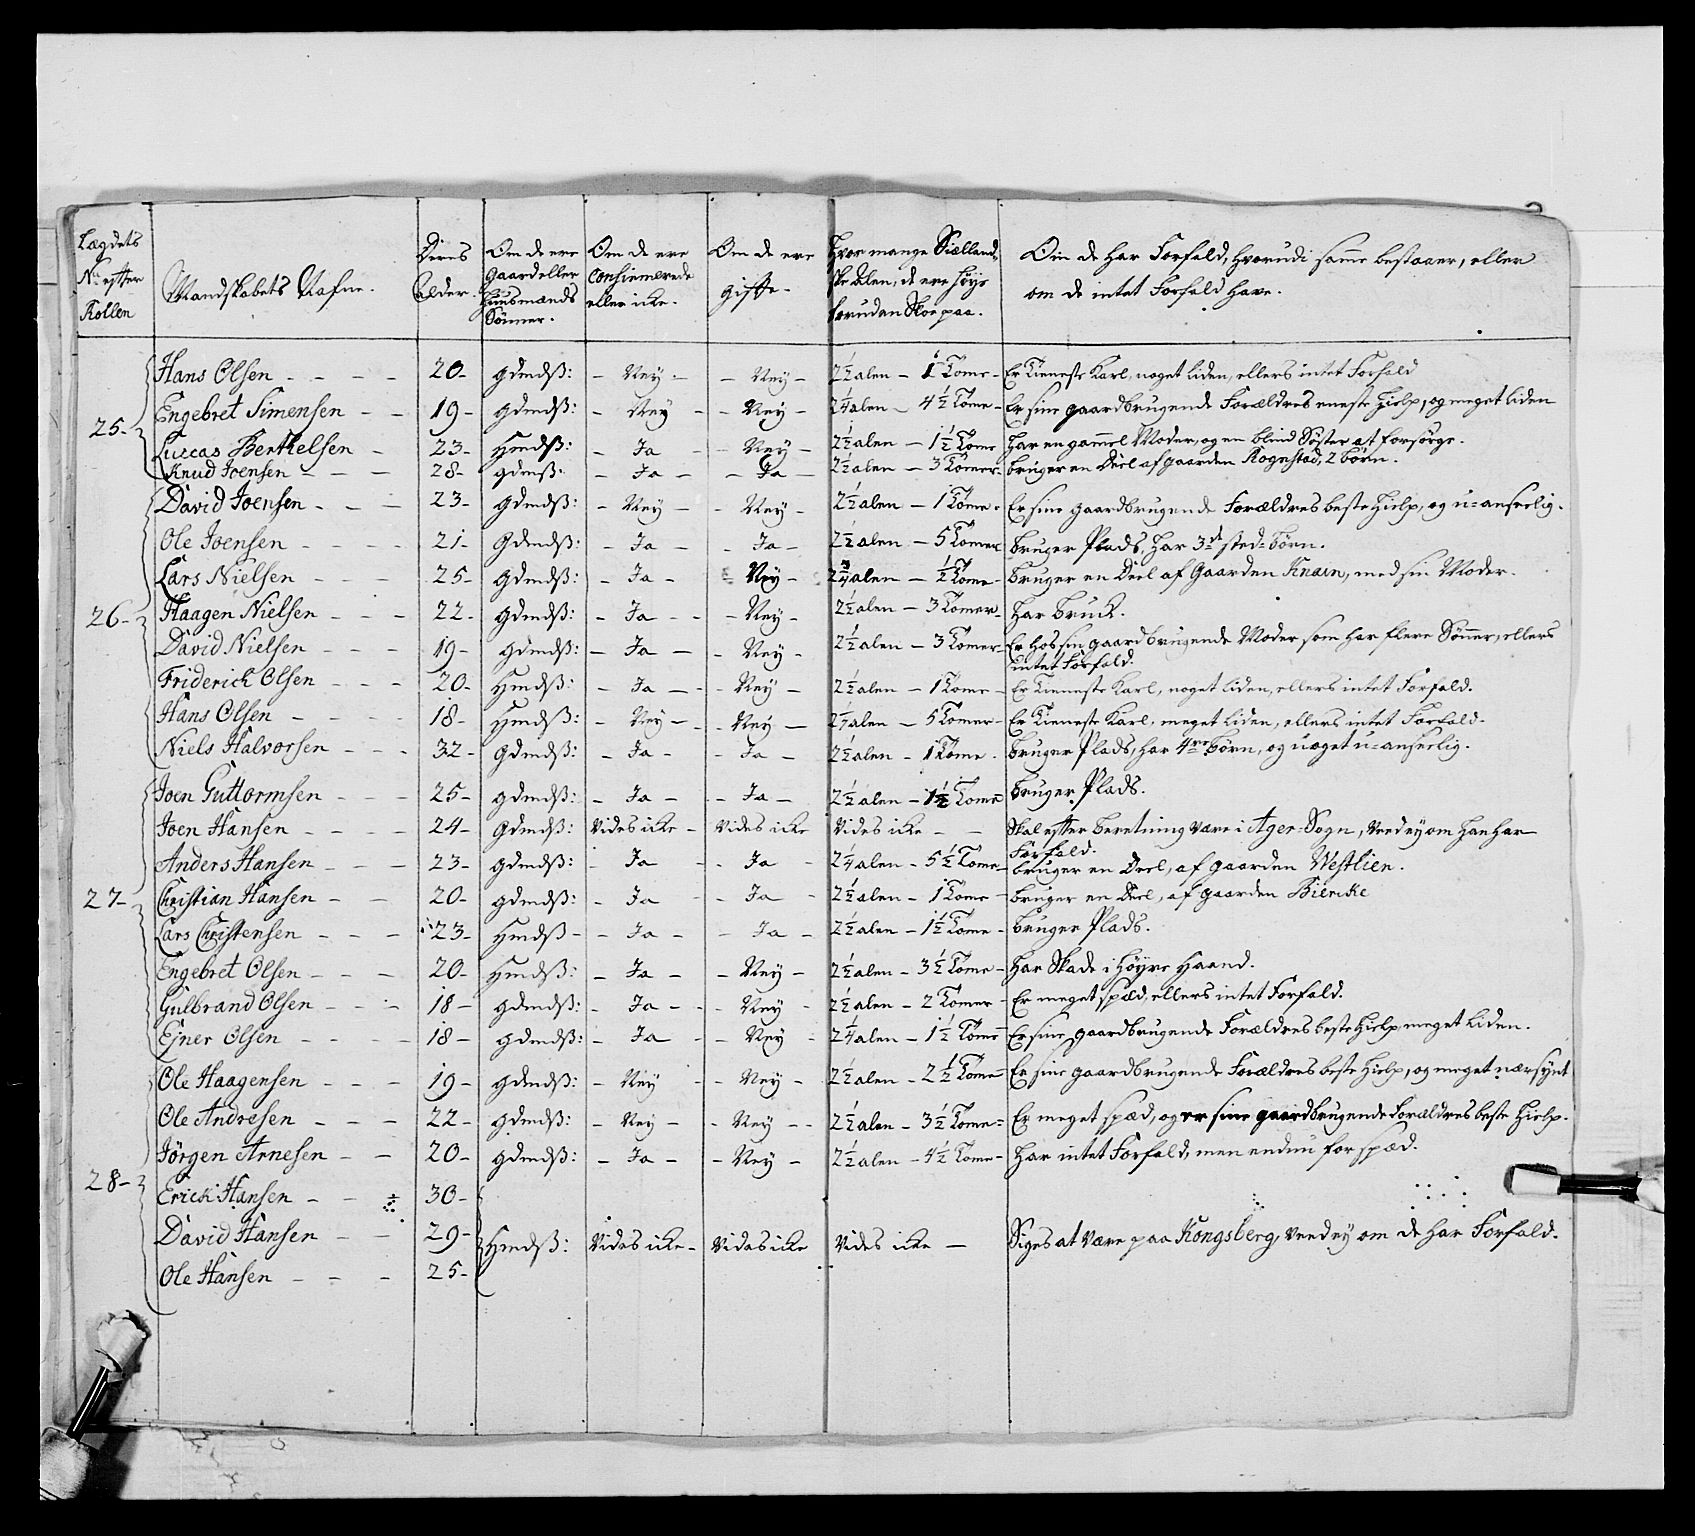 Lægdets N.o efter Rollen | Mandskabets Nafne. | Deres Alder. | Om de ere Gaard eller Huusmænds Sönner. | Om de ere Confirmerede eller icke. | Om de ere gifte. | Hvor mange Siællandske Alen, de ere höye foruden Skoe paa. | Om de har Forfald, hvorudi samme bestaaer, eller om de intet Forfald have.
25 - Hans Olsen - - - - 20 - gdmdß: - Ney - - Ney - 2½ alen - 1 Tome - Er Tieneste Karl, noget liden, ellers intet Forfald
Engebret Simensen - - 19 - gdmdß: - Ney - - Ney - 2¼ alen - 4½ Tome - Er sine gaardbrugende Forældres eneste Hielp, og meget liden
Luccas Berthelsen - 23 - Hmdß: - Ja - - Ney - 2½ alen - 1½ Tome Har en gammel Moder, og en blind Söster at forsörge.
Knud Joensen - - - 28 - gdmß: - Ja - - Ja - 2½ alen - 3 Tomer - bruger en Deel af gaarden Rognstad, 2 börn.
26 - David Joensen - - - 23 - gdmdß: - Ney - - Ney - 2½ alen - 1 Tome - Er sine gaardbrugende Forældres beste Hielp, og u-anseelig.
Ole Joensen - - - - 21 - Gdmdß: - Ja - - Ja - 2½ alen - 5 Tomer bruger Plads, har 3de sted-börn.
Lars Nielsen - - - 25 - gdmdß: - Ja - Ney - 2¾ alen - ½ Tome - bruger en Deel af Gaarden Knæin, med sin Moder.
Haagen Nielsen - - - 22 - gdmdß: - Ja - - - Ney - 2½ alen - 3 Tomer - har bruck.
David Nielsen - - - 19 - gdmdß: - Ja - - Ney - 2½ alen - 3 Tomer - Er hos sin gaardbrugende Moder som har flere Sönner, ellers
intet Forfald.
Friderich Olsen - - - 20 - Hmdß: - Ja - - - Ney - 2½ alen - 1 Tome - Er Tieneste Karl, noget liden, ellers intet Forfald.
Hans Olsen - - - - 18 - Hmdß: - Ney - - Ney - 2¼ alen - 5 Tomer - Er Tieneste Karl, meget liden, ellers intet Forfald.
Niels Halvorsen - - - 32 - Gdmdß: - Ja - - Ja - 2½ alen - 1 Tome - bruger Plads, har 4re börn, og noget u-anseelig.
27 - Joen Guttormsen - - - 25 - gdmdß: - Ja - - Ja - 2½ alen - 1½ Tome bruger Plads.
Joen Hansen - - - - 24 - Gdmdß: Vides icke - Vides icke Vides icke - - Skal efter beretning være i Ager-Sogn, veed ey om han har
Forfald.
Anders Hansen - - - 23 - gdmdß: - Ja - - Ja - 2¼ alen - 5½ Tome - bruger en Deel, af gaarden Westlien.
Christian Hansen - - 20 - gdmdß: - Ja - - Ja - 2½ alen - 1 Tome - bruger en Deel, af gaarden Biencke
Lars Christensen - - - 23 - Hmdß - - Ja - - Ja - 2½ alen - 1½ Tome - bruger Plads.
Engebret Olsen - - - 20 - Hmdß: - Ja - - Ney - 2½ alen - 3½ Tome - har Skade i höyre Haand.
Gulbrand Olsen - - - 18 - gdmdß: - Ja - - - Ney - 2½ alen - 2 Tomer - Er meget spæd, ellers intet Forfald.
Ejner Olsen - - - - 18 - gdmdß: - Ja - - Ney - 2¼ alen - 1½ Tome Er sine gaardbrugende Forældres beste Hielp, meget liden.
28 - Ole Haagensen - - - 19 - gdmdß: - Ney - - Ney - 2½ alen - 2½ Tome Er sine gaardbrugende Forældres beste Hielp, og meget nærsynt
Ole Andresen - - - 22 - gdmdß: - Ney - - Ney - - 2½ alen - 3½ Tome - Er meget spæd, og er sine gaardbrugende Forældres beste Hielp.
Jörgen Arnesen - - 20 - gdmdß: - Ja - - Ney - 2½ alen - 4½ Tome - har intet Forfald, men endnu for spæd.
Erick Hansen - - 30 -
David Hansen - - 29 - Hmdß: Vides icke - Vides icke Vides icke - Siges at være paa Kongsberg, veed ey om de har Forfald.
Ole Hansen - - - 25 -